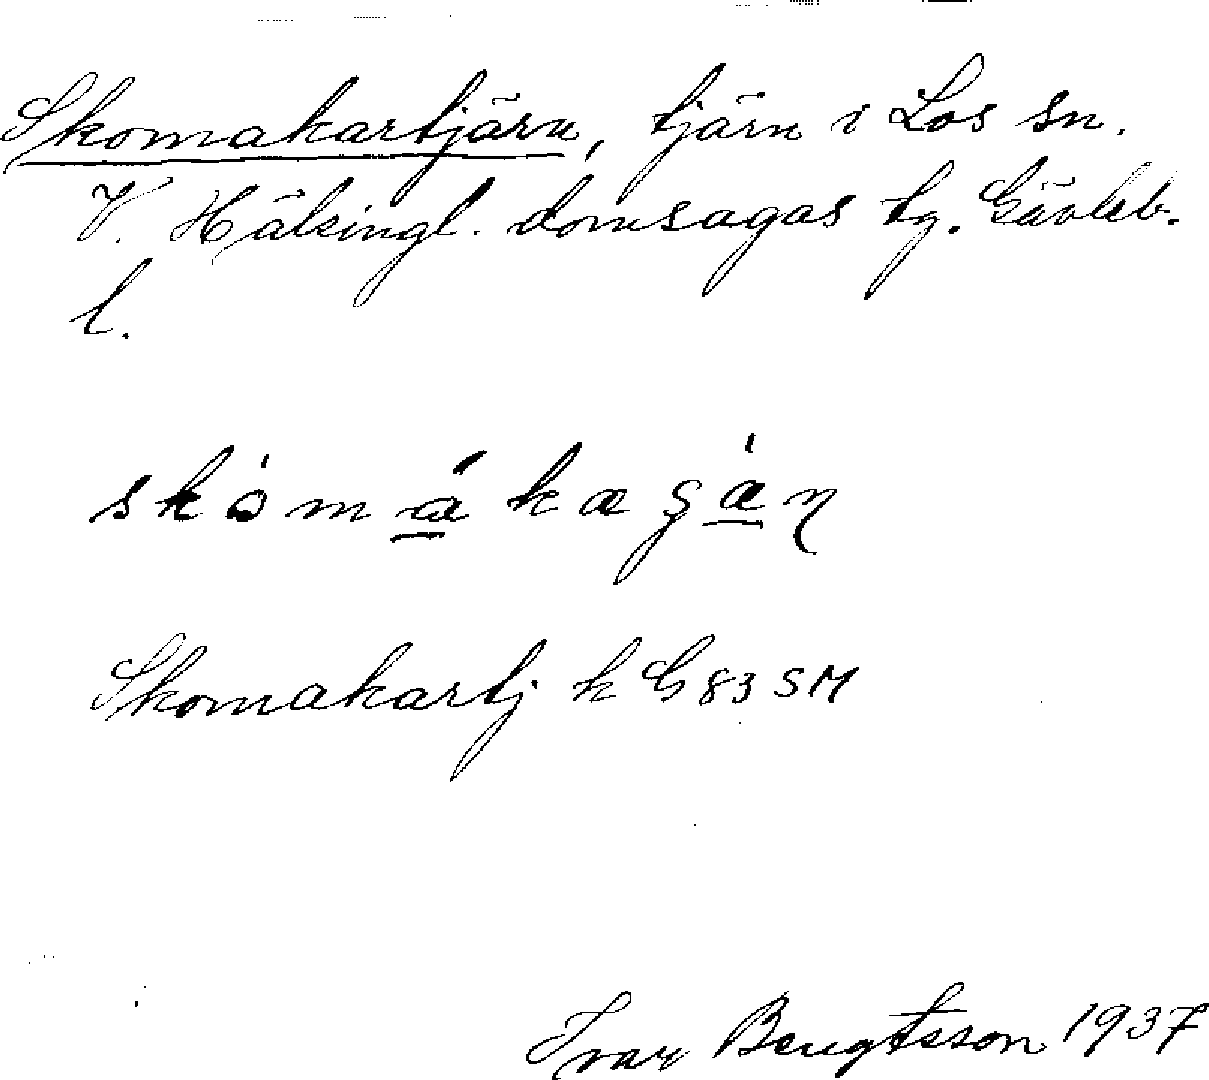 Skomakartjärn, tjärn i Los sn.
V. Hälsingl. domsagas tg. Gävleb.
l.
Skomakartj k G 83 SM
Ivar Bengtsson 1937